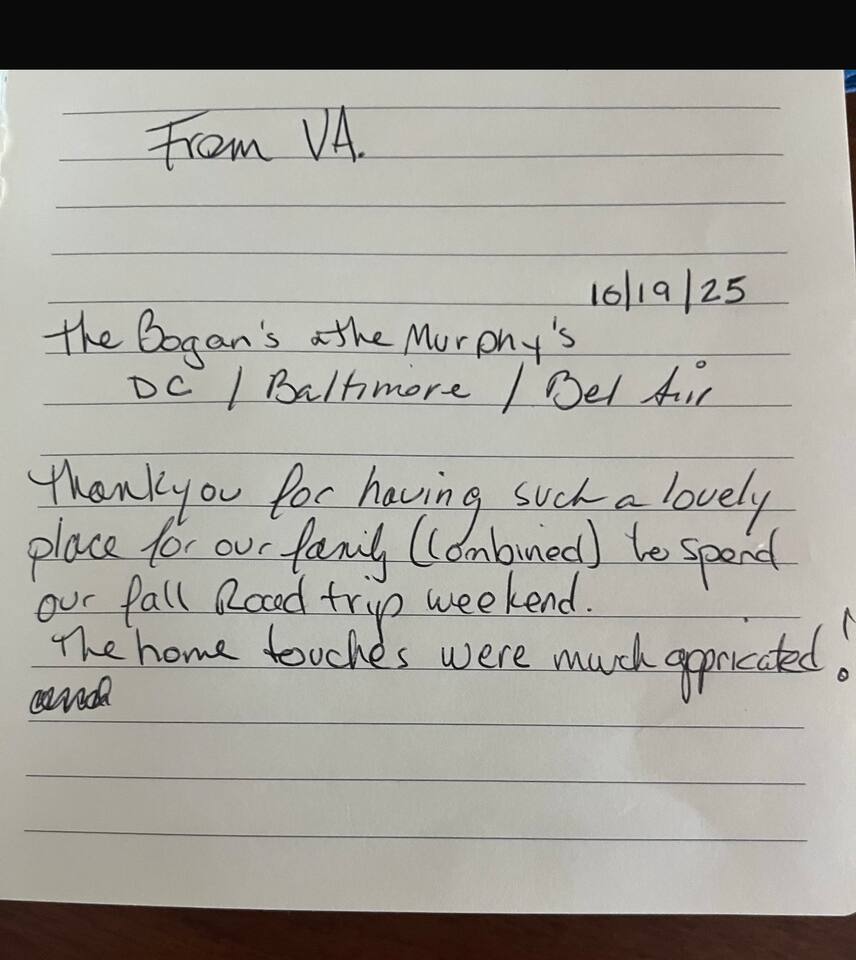 From VA.
10/19/25
the Bogan's & the Murphy's
DC / Baltimore / Bel Air
Thankyou for having such a lovely
place for our family (Combined) to spend
our fall Road trip weekend.
The home touches were much appricated!